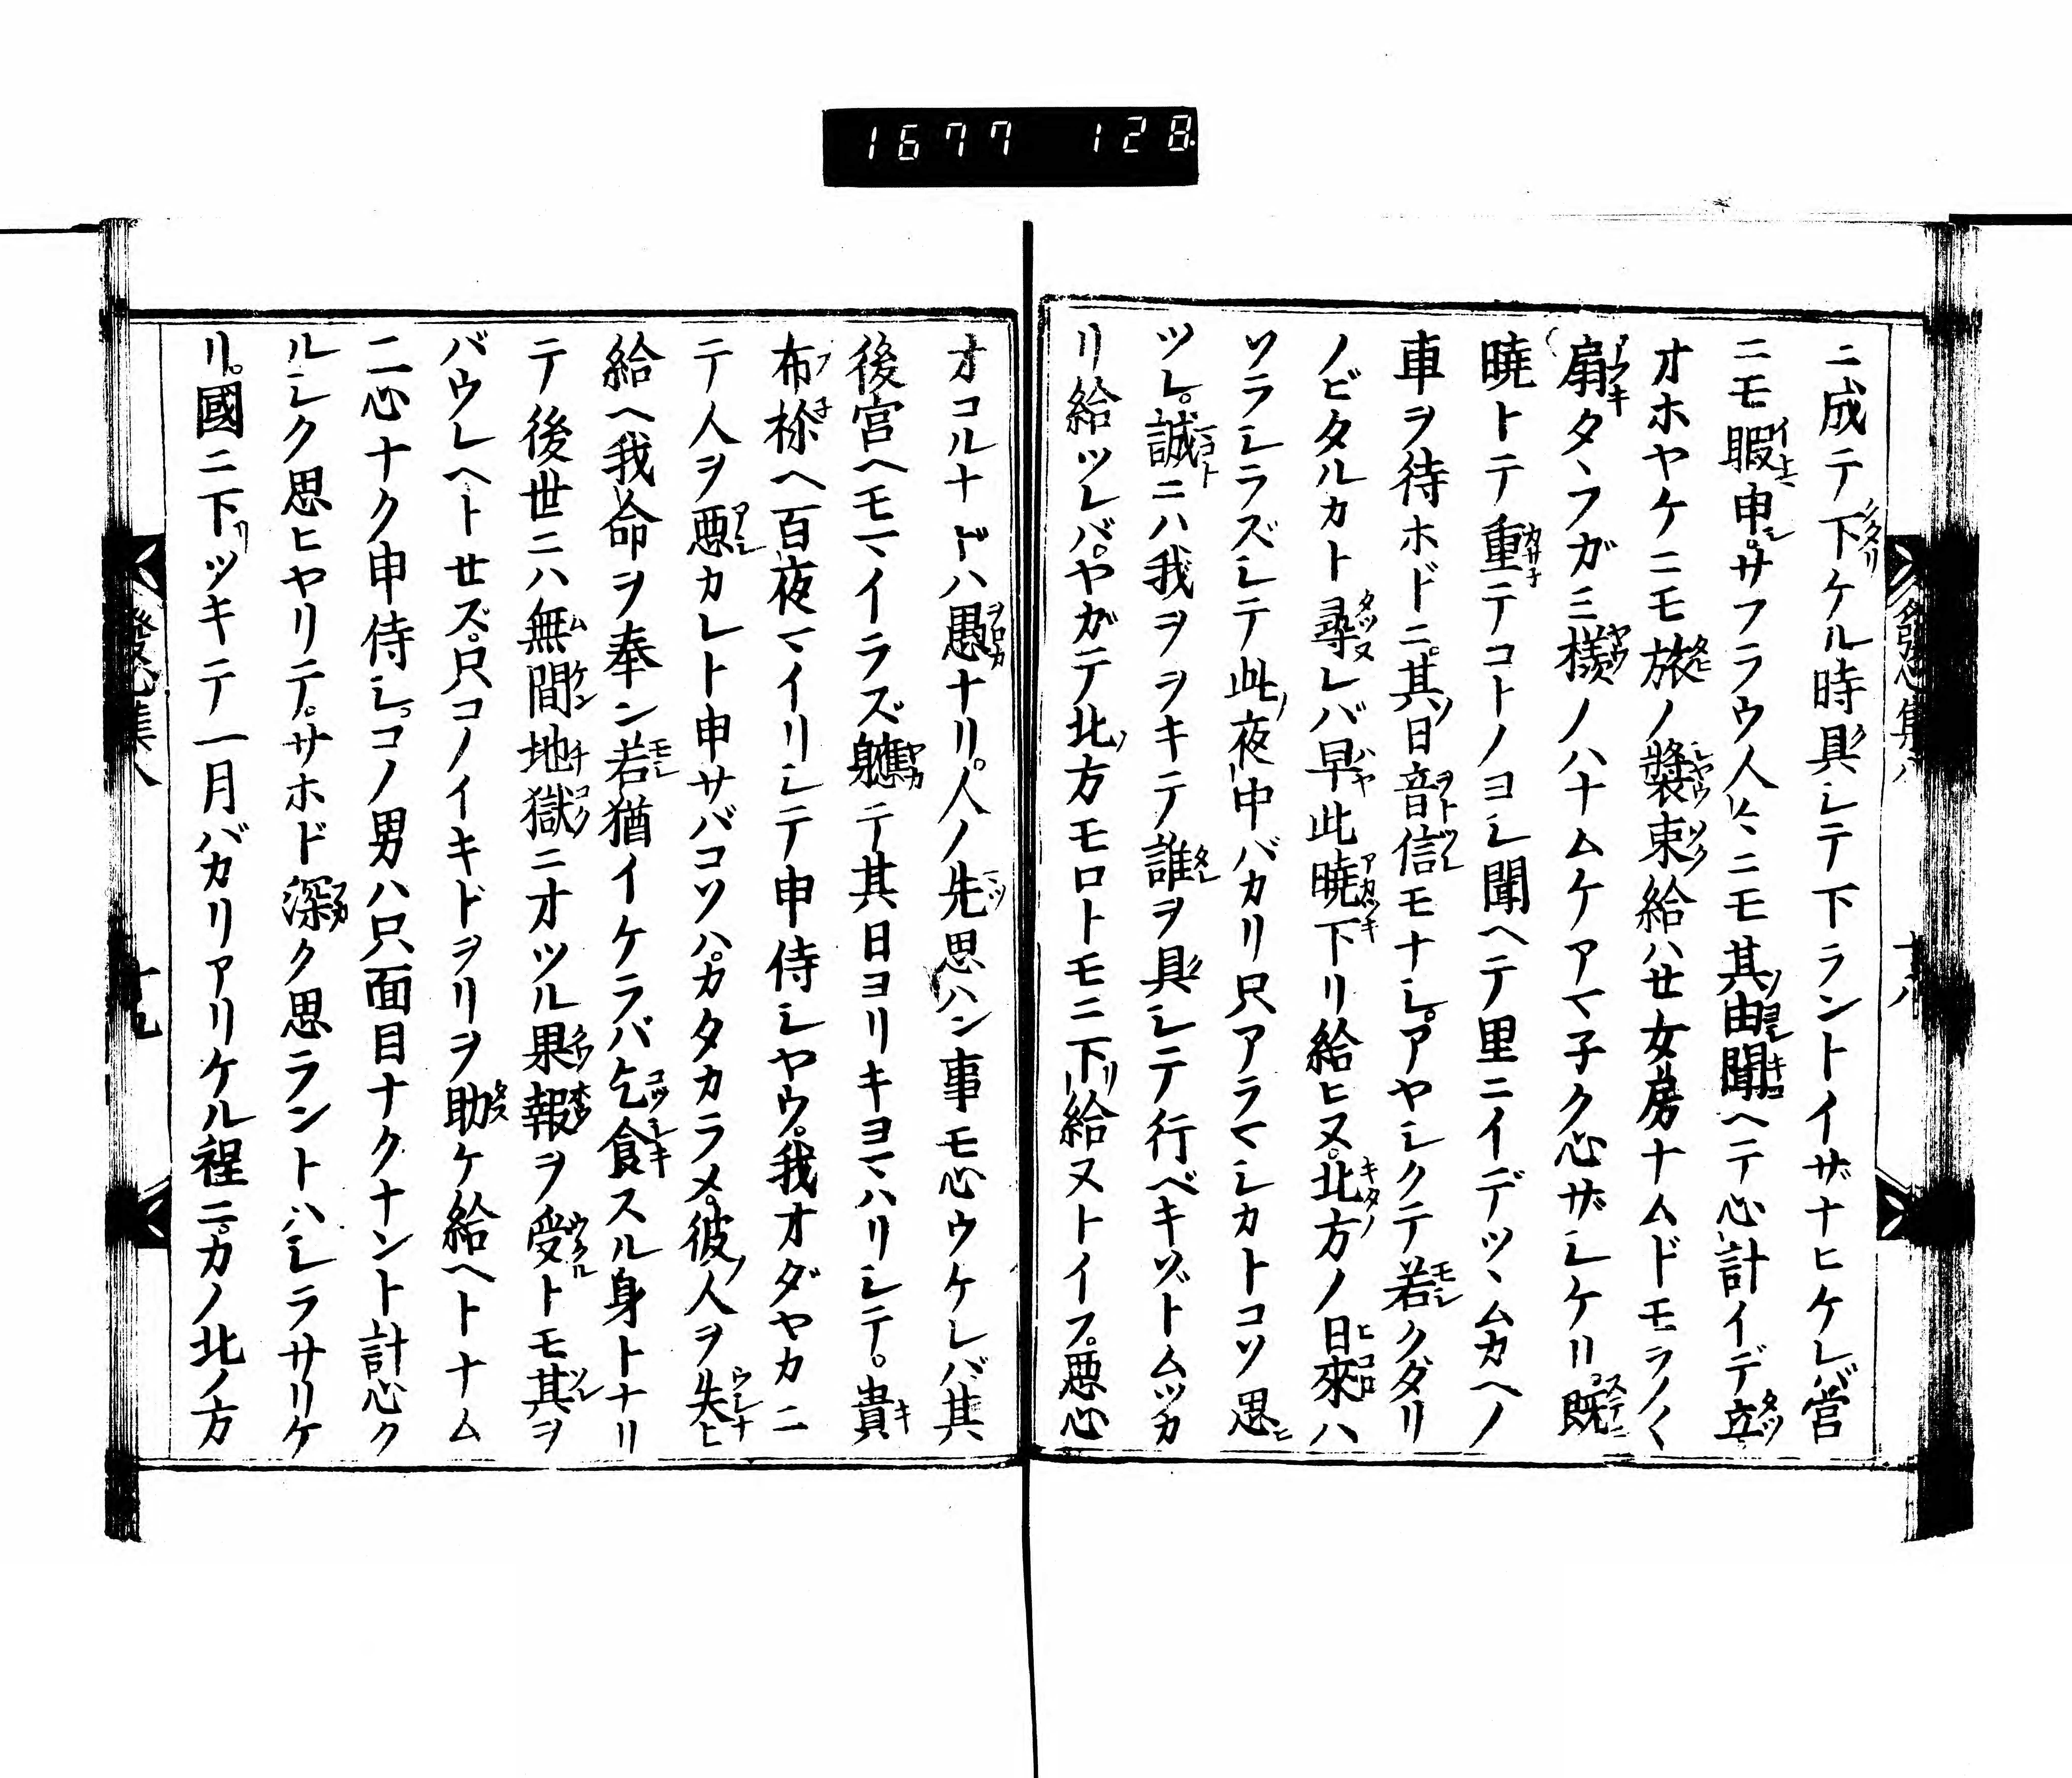 1677 128
ニ成テ下ケル時具シテ下ラントイザナヒケレバ営
ニモ暇申。サフラウ人々ニモ其由聞ヘテ心計イデ立
オホヤケニモ旅ノ裝束給ハせ女房ナムドモラノく
扇タヽフガミ様ノハナムケアマ子ク心ザシケリ。既
曉トテ重テコトノヨシ聞ヘテ里ニイデツヽムカヘノ
車ヲ待ホドニ。其日音信モナシ。アヤシクテ若クダリ
ノビタルカト尋レバ早此曉下リ給ヒヌ。北方ノ日來ハ
ソラシラズシテ此夜中バカリ只アラマシカトコソ思
ツレ。誠ニハ我ヲヲキテ誰ヲ具シテ行ベキゾトムツカ
リ給ツレバ。ヤガテ北方モロトモニ下給ヌトイフ。悪心
オコルナドハ愚ナリ。人ノ先思ハン事モ心ウケレバ其
後宮ヘモマイラズ軈テ其日ヨリキヨマハリシテ。貴
布祢ヘ百夜マイリシテ申侍シヤウ。我オダヤカニ
テ人ヲ悪カレト申サバコソハ。カタカラメ。彼人ヲ失ヒ
給ヘ我命ヲ奉ン若猶イケラバ乞食スル身トナリ
テ後世ニハ無間地獄ニオツル果報ヲ受トモ其ヲ
バウレヘトせズ。只コノイキドヲリヲ助ケ給ヘトナム
二心ナク申侍シ。コノ男ハ只面目ナクナント計心ク
ルシク思ヒヤリテ。サホド深ク思ラントハシラサリケ
リ。國ニ下ツキテ一月バカリアリケル程ニ。カノ北ノ方